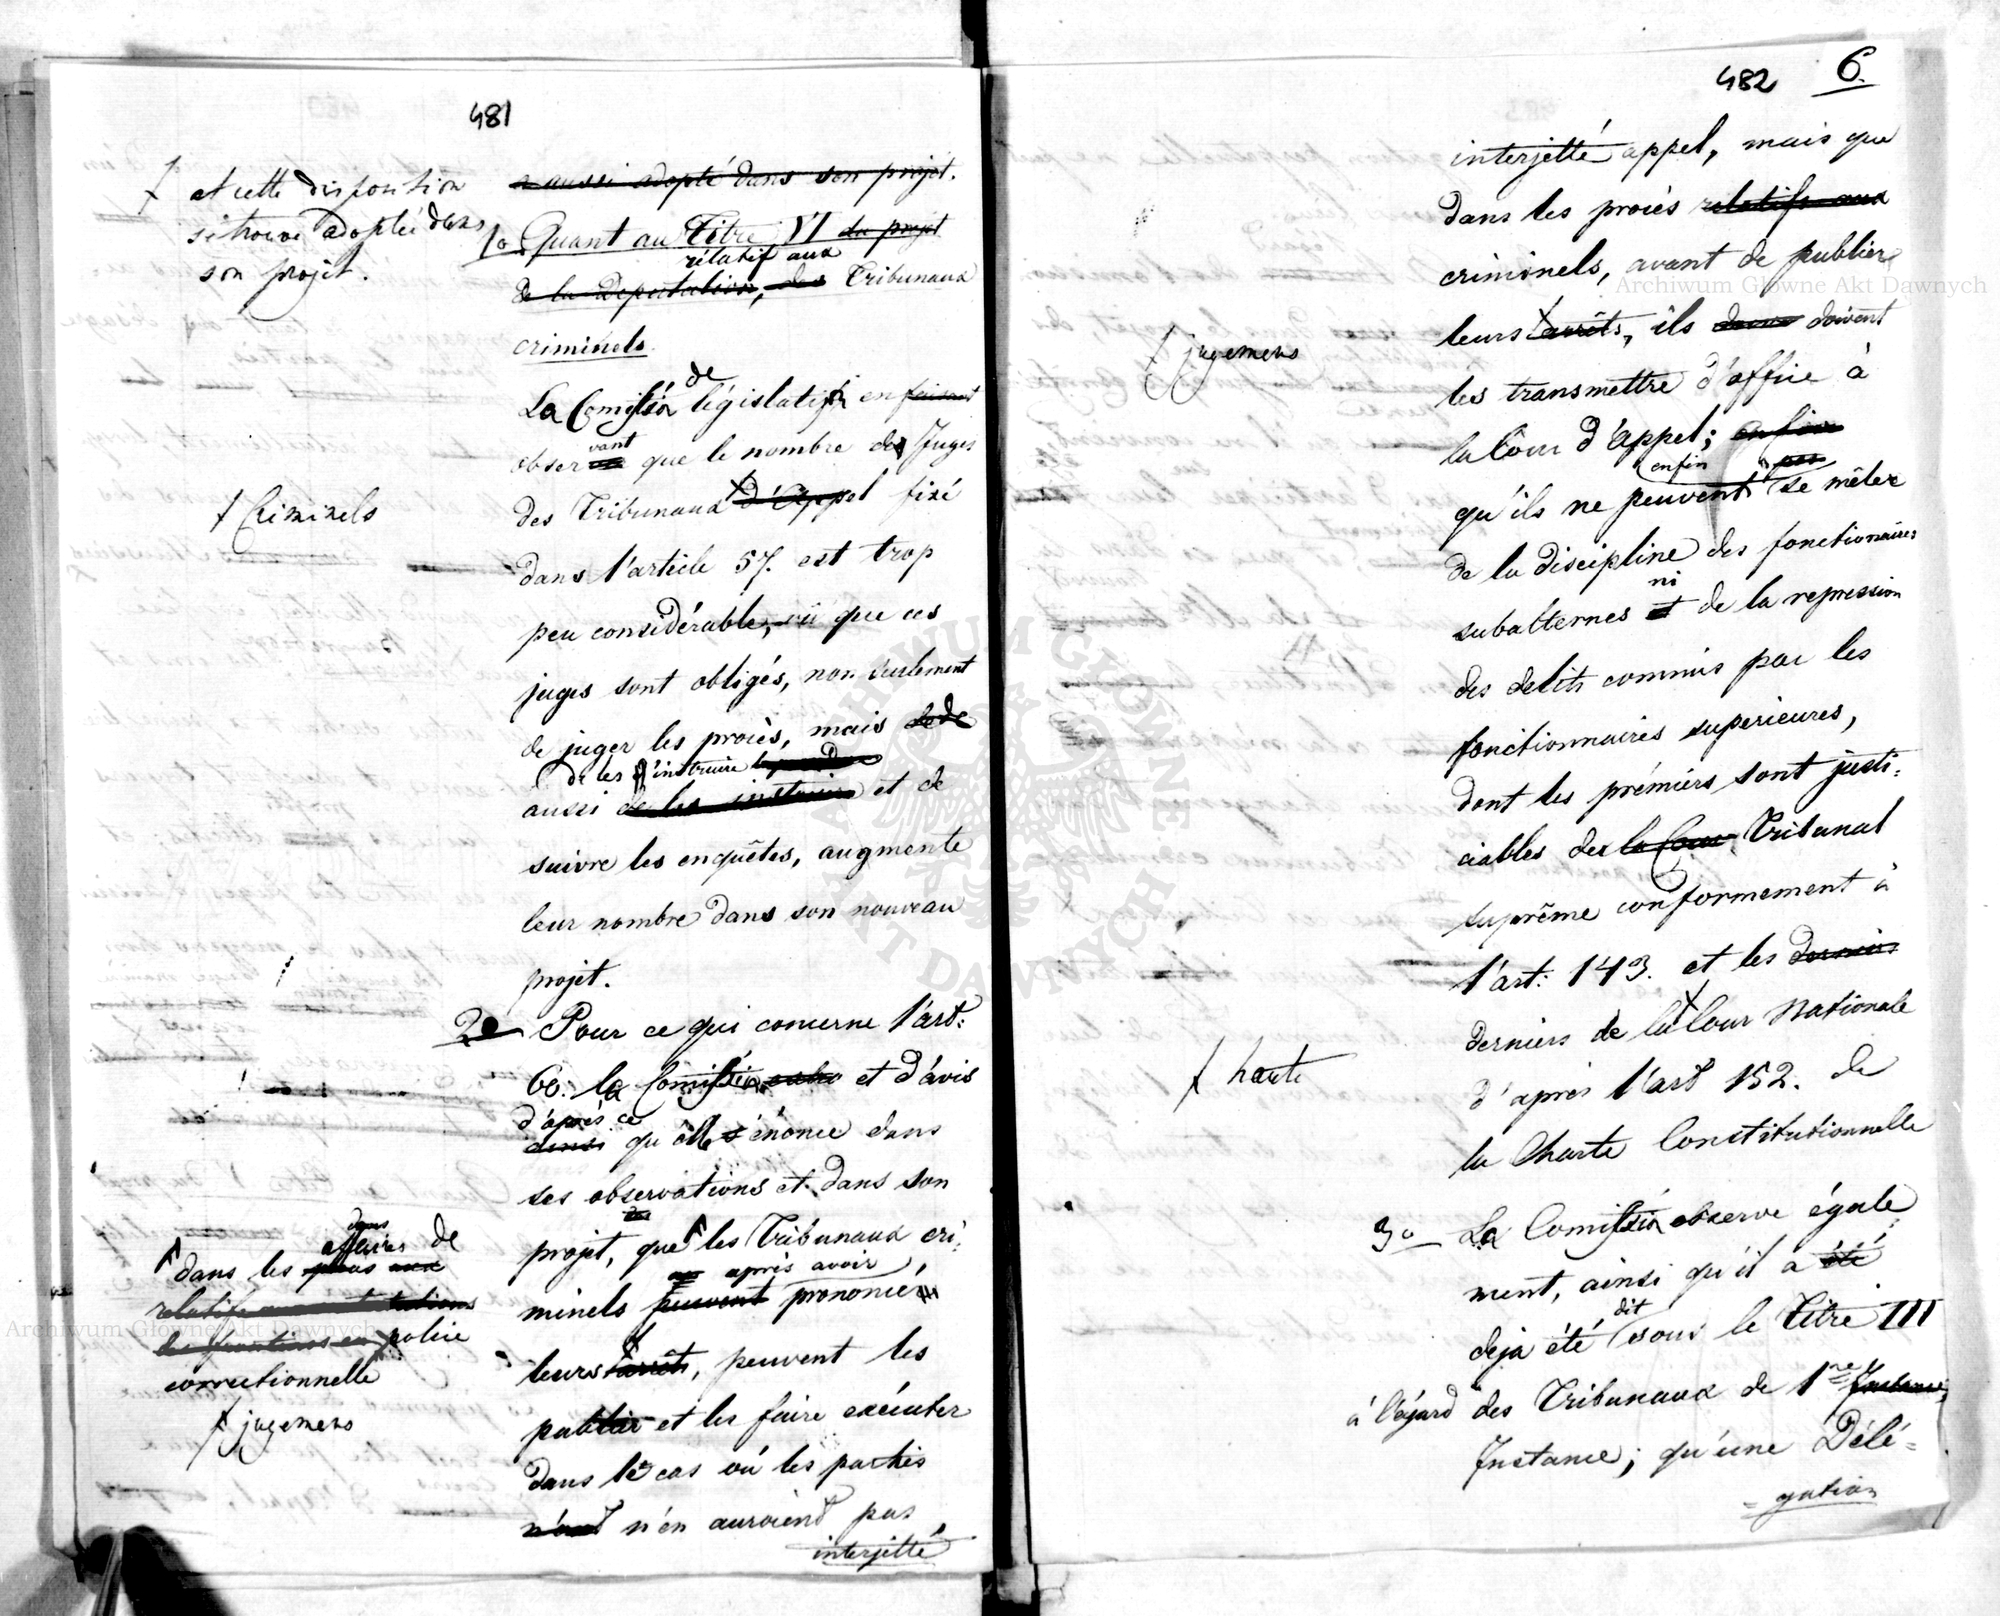 481
ꝉ et cette disposition
se trouve adoptée dans
son projet.
a aussi adopté dans son projet.
1o Quant au Titre VI du projet
rélatif aux
de la Deputation, des Tribunaux
criminels.
de
La Comission législatif en faisant
vant
observ que le nombre de Juges
ꝉ Criminels
des Tribunaux d'Appel fixé
dans l'article 57. est trop
peu considérable, vû que ces
juges sont obligés, non seulement
de juger les procès, mais de
de les instruire
aussi de les instruire et de
suivre les enquêtes, augmente
leur nombre dans son nouveau
projet.
2o Pour ce qui concerne l'art:
60: la Comission est d'avis
d'après ce
qu'elle énonce dans
ses observations et dans son
projet, que les Tribunaux cri-
après avoir
minels peuvent prononcé
leurs arrêts, peuvent les
publier et les faire exécuter
dans le cas où les parties
n'ont n'en auroient pas
interjetté
affaires de
dans les
relatifs
police
correctionnelle
ꝉ jugemens
482 6.
interjetté appel, mais que
dans les procès relatifs aux
criminels, avant de publier
leurs arrêts, ils doivent
ꝉ jugemens
les transmettre d'office à
la Cour d'Appel; enfin
enfin pas
qu'ils ne peuvent se mêler
de la discipline des fonctionaires
ni
subalternes et de la repression
des delits commis par les
fonctionnaires superieures,
dont les prémiers sont justi-
ciables de la Cour Tribunal
suprême conformement à
l'art: 143. et les derniers
derniers de la Cour Nationale
ꝉ haute
d'après l'art 152. de
la Charte Constitutionnelle
3o La Comission observe égale-
ment, ainsi qu'il a été
dit
deja été sous le Titre III
à l'égard des Tribunaux de 1re Instance,
Instance; qu'une Délé-
gation
Archiwum Główne Akt Dawnych
Archiwum Główne Akt Dawnych
ARCHIWUM GŁÓWNE AKT DAWNYCH